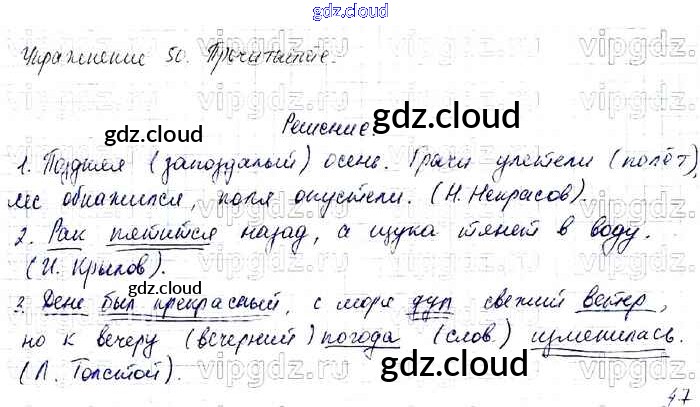 gdz.cloud
Упражнение 50. Прочитайте.
Решение
1. Поздняя (запоздалый) осень. Грачи улетели (полёт),
лес обнажился, поля опустели. (Н. Некрасов).
2. Рак пятится назад, а щука тянет в воду.
(И. Крылов).
3. День был прекрасный, с моря дул свежий ветер,
но к вечеру (вечерний) погода (слов.) изменилась.
(Л. Толстой).
47